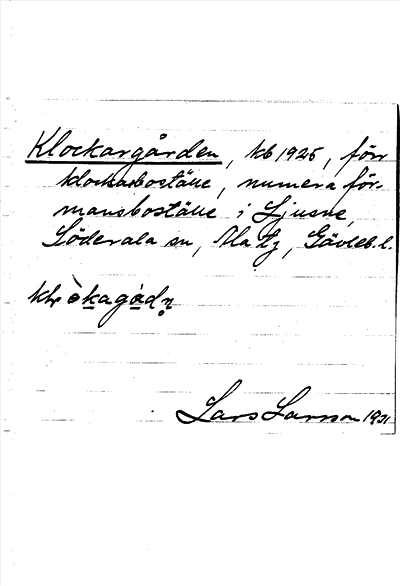 Klockargården, kb 1925, förr
klockarboställe, numera för-
mansboställe i Ljusne,
Söderala sn, Ala tg, Gävleb. l.
Lars Larsson 1931